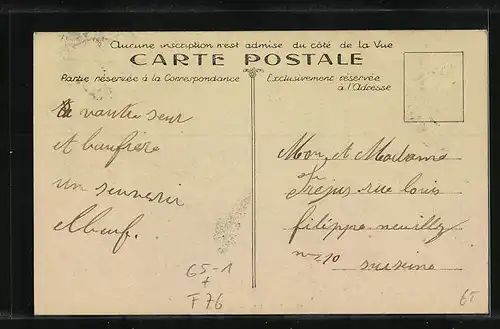 Aucune inscription n'est admise du côté de la Vue
CARTE POSTALE
Partie réservée à la Correspondance
Exclusivement réservée
à l'Adresse
vautre seur
et baufrère
un seuvenir
Mon et Madame
Frejus rue louis
filippe neuilly
n 10 sur seine
65-1
+
F76
65